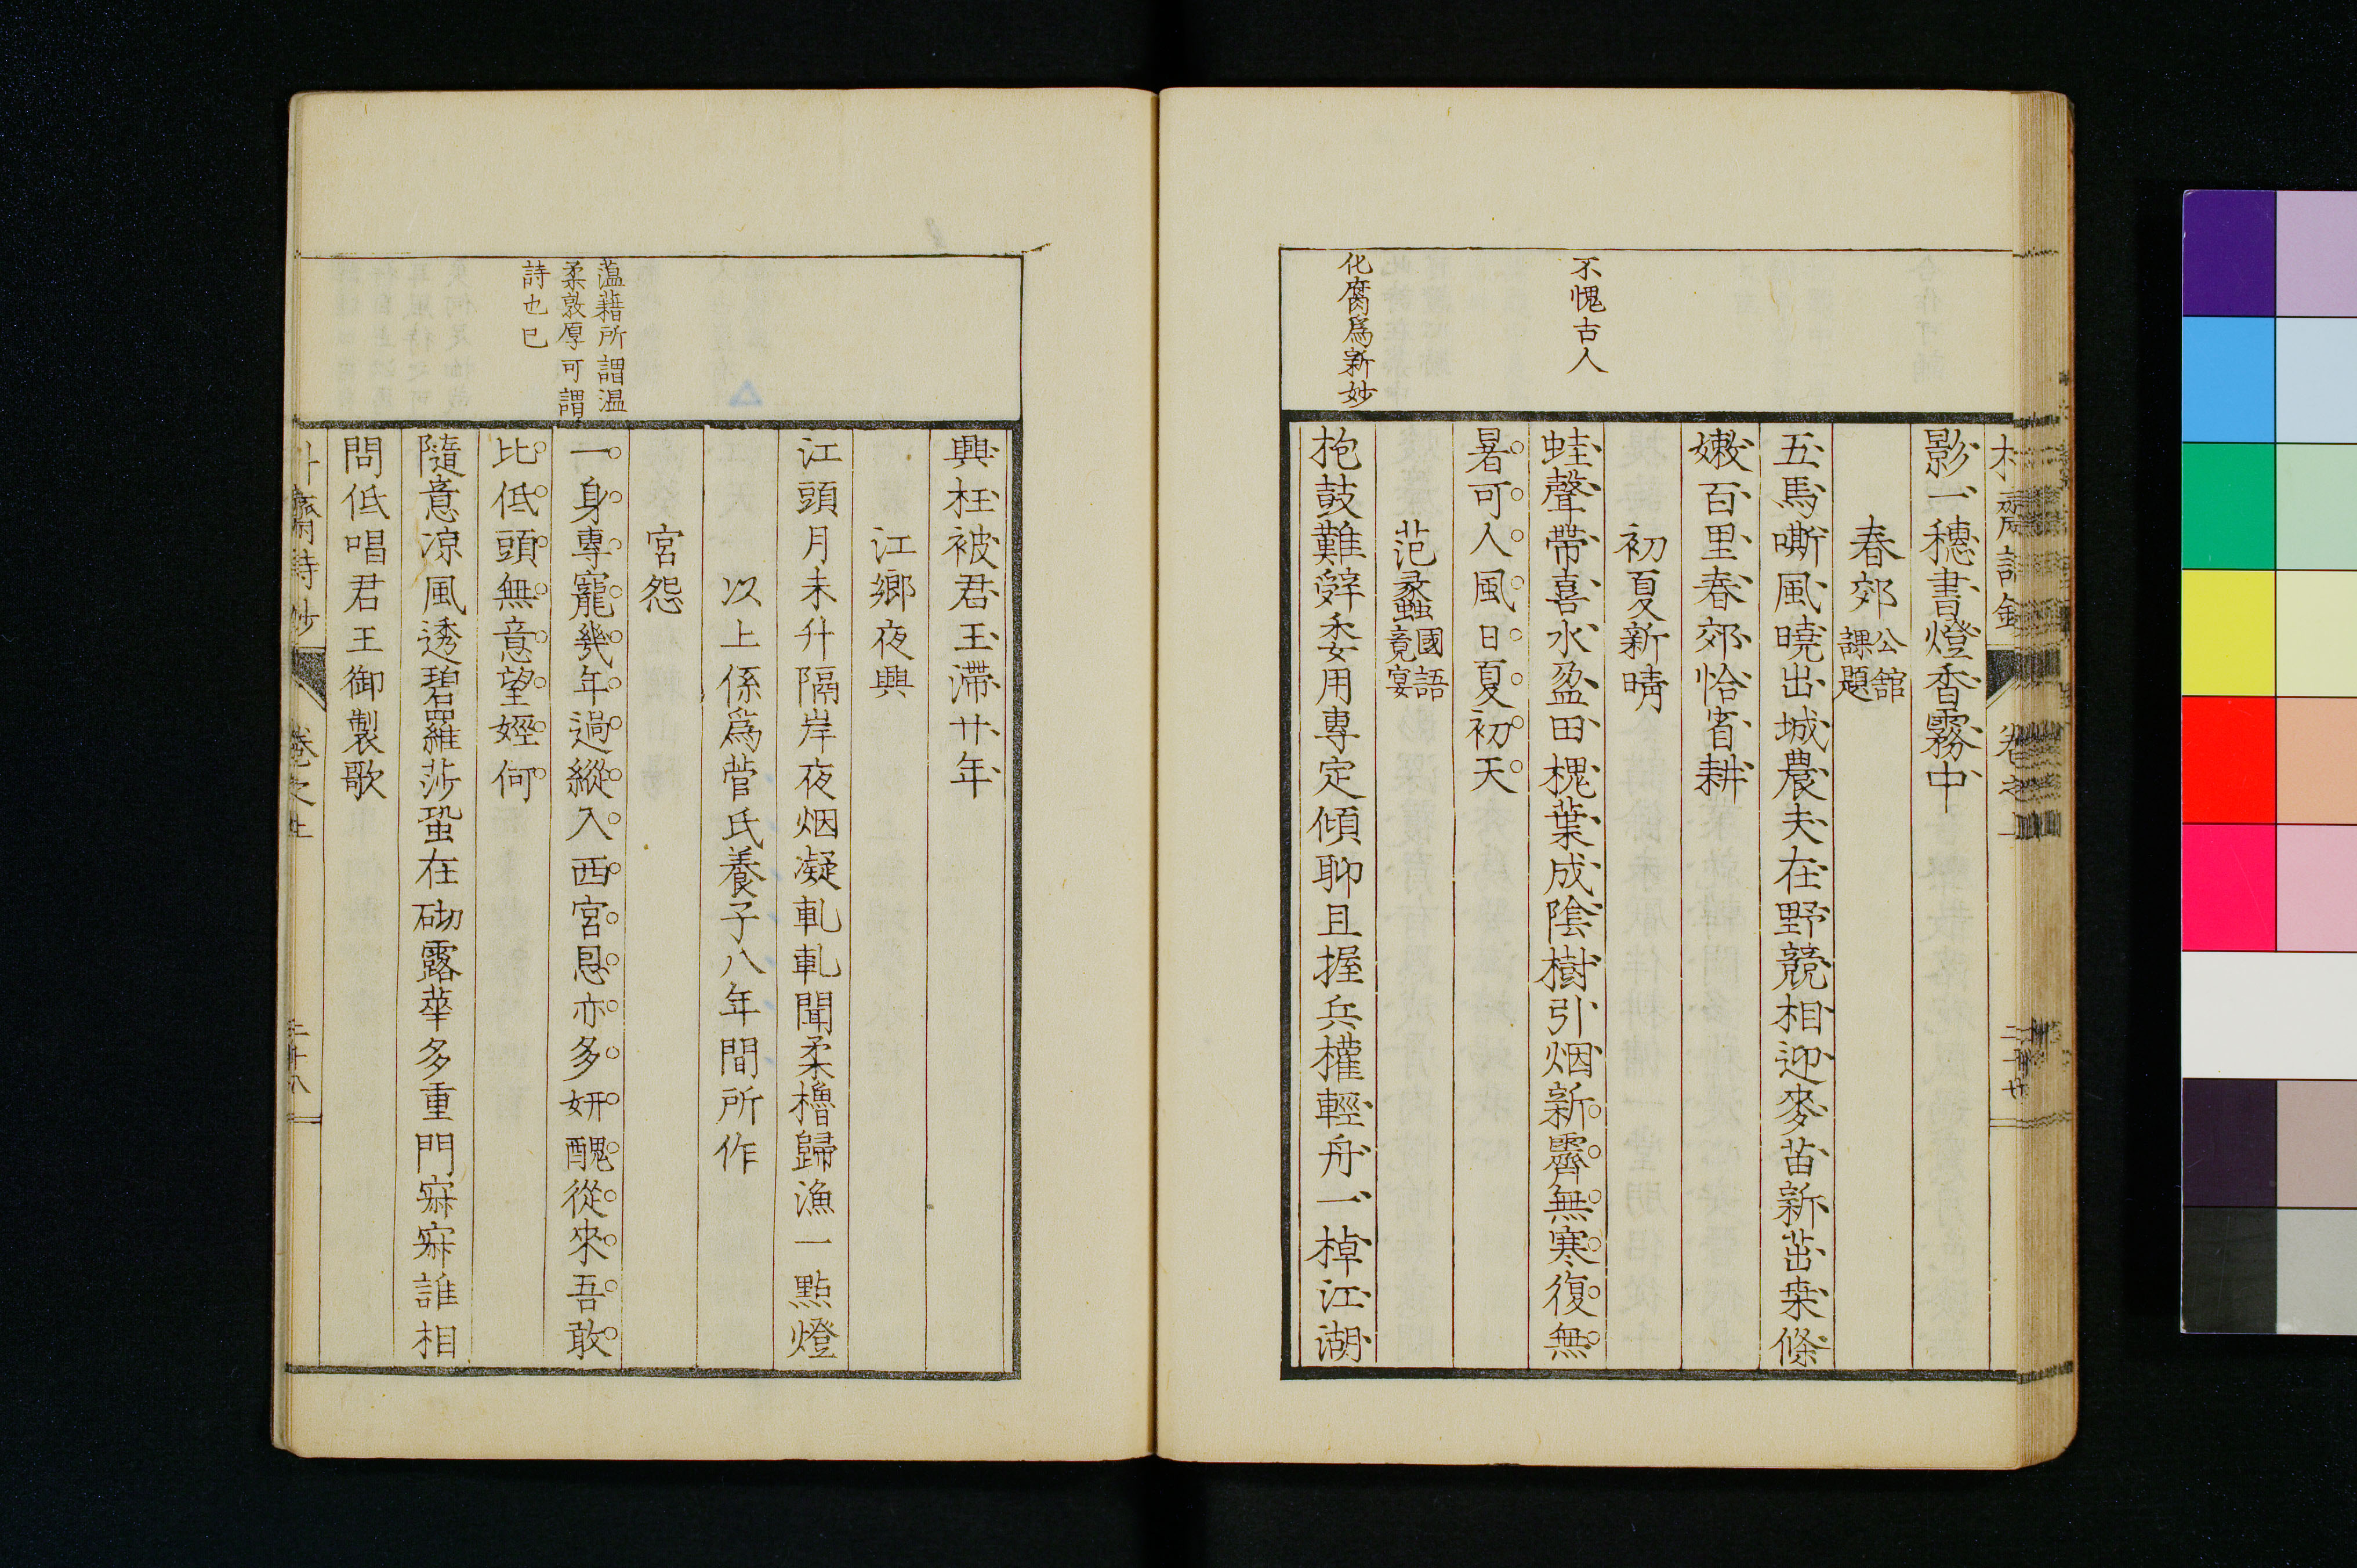 不愧古人
化腐爲新妙
影一穗書燈香霧中
春郊 公舘課題
五馬嘶風曉出城農夫在野競相迎麥苗新茁桒條
嫩百里春郊恰省耕
初夏新晴
蛙聲帶喜水盈田槐葉成陰樹引烟新霽無寒復無
暑可人風日夏初天
范蠡 國語竟宴
枹鼓難辭委用專定傾聊且握兵權輕舟一棹江湖
蒀藉所謂温
柔敦厚可謂
詩也已
興枉被君王滯廿年
江鄉夜興
江頭月未升隔岸夜烟凝軋軋聞柔櫓歸漁一點燈
以上係爲菅氏養子八年間所作
宮怨
一身專寵幾年過縱入西宮恩亦多妍醜從來吾敢
比低頭無意望娙何
隨意凉風透碧羅莎蛩在砌露華多重門寂寂誰相
問低唱君王御製歌
齋詩鈔 卷之上 三十八